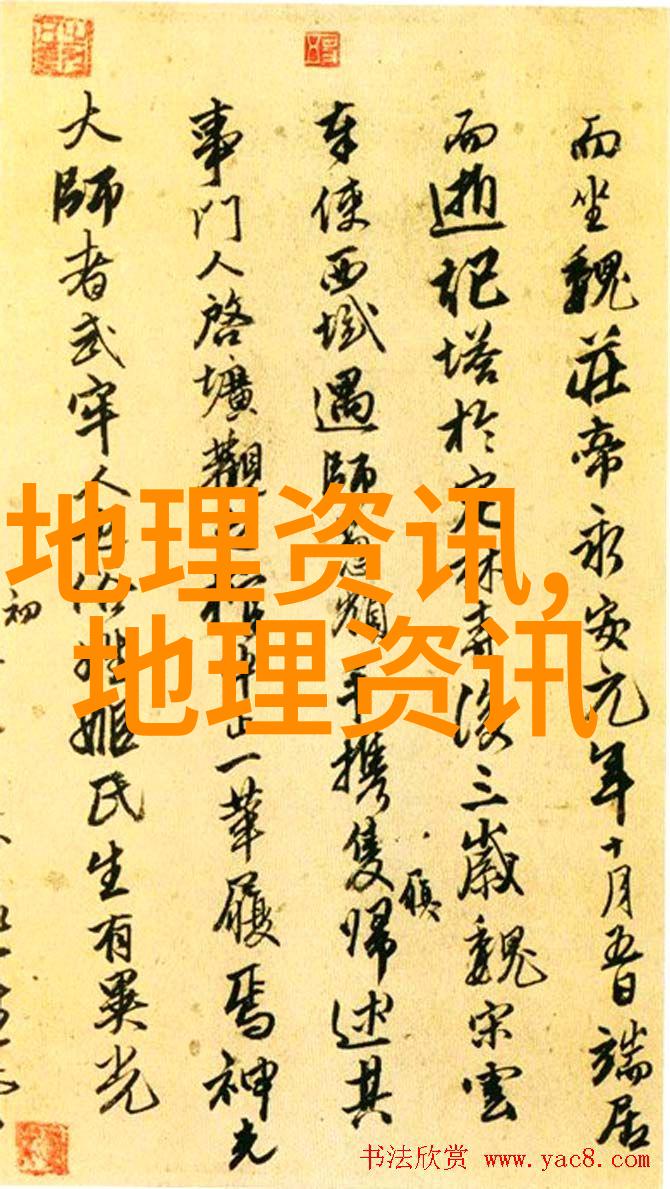 而坐魏莊帝永安元年十月五日端居
而逝記塔於定林寺後三歲魏宋雲
奉使西域遇師手携隻歸述其
履
事門人啓壙觀止一革履焉神光
大師者武牢人也俗姓姬氏生有異光
初
地理资讯,
地理资讯
书法欣赏 www.yac8.com